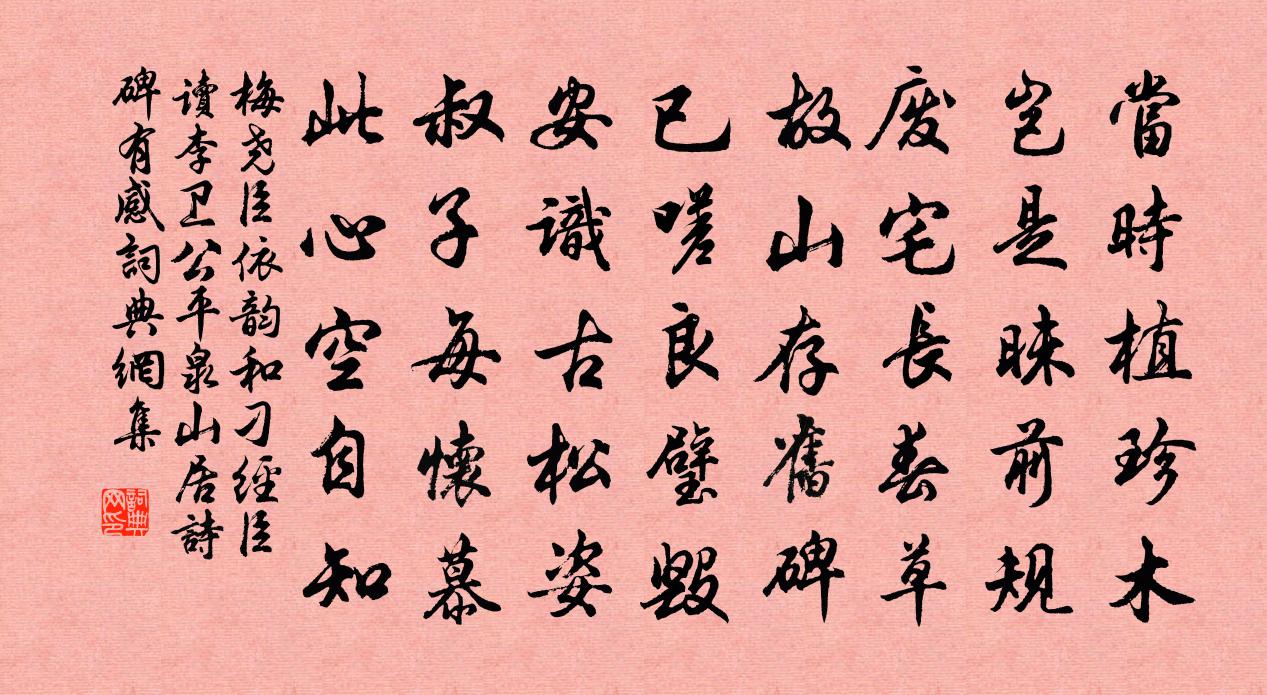 當時植珍木
豈是昧前規
廢宅長春草
故山存舊碑
已嗟良璧毀
安識古松姿
叔子每懷慕
此心空自知
梅尧臣依韵和刁經臣
讀李卫公平泉山居詩
碑有感詞典網集
詞典网印